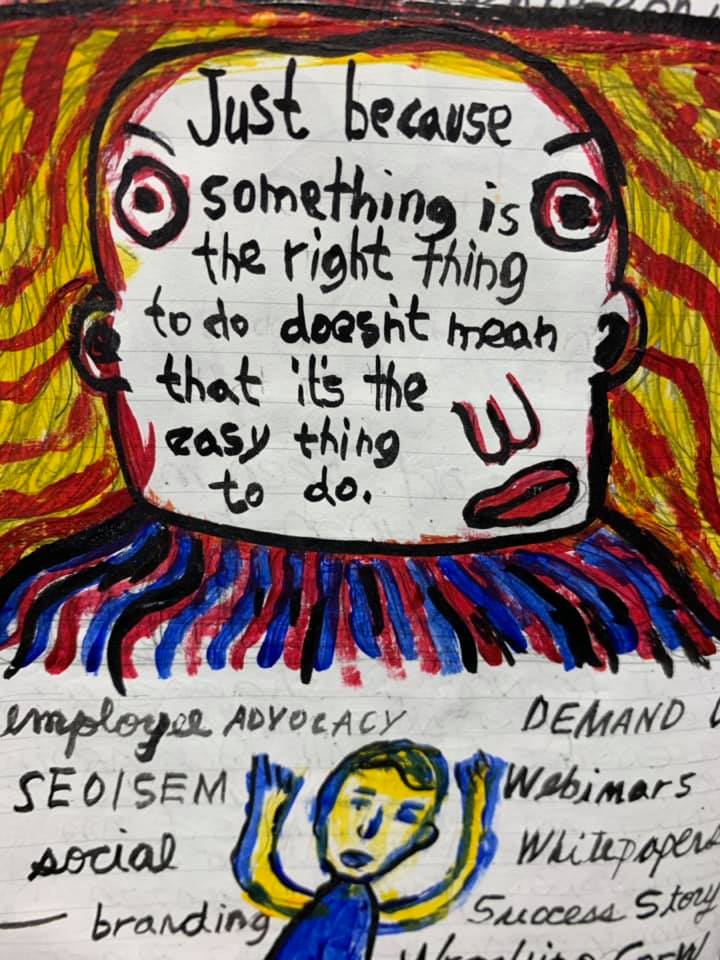 Just because
something is
the right thing
to do doesn't mean
that it's the
easy thing
to do.
employee ADVOCACY
DEMAND
SEO/SEM
Webinars
social
Whitepapers
— branding
Success Story